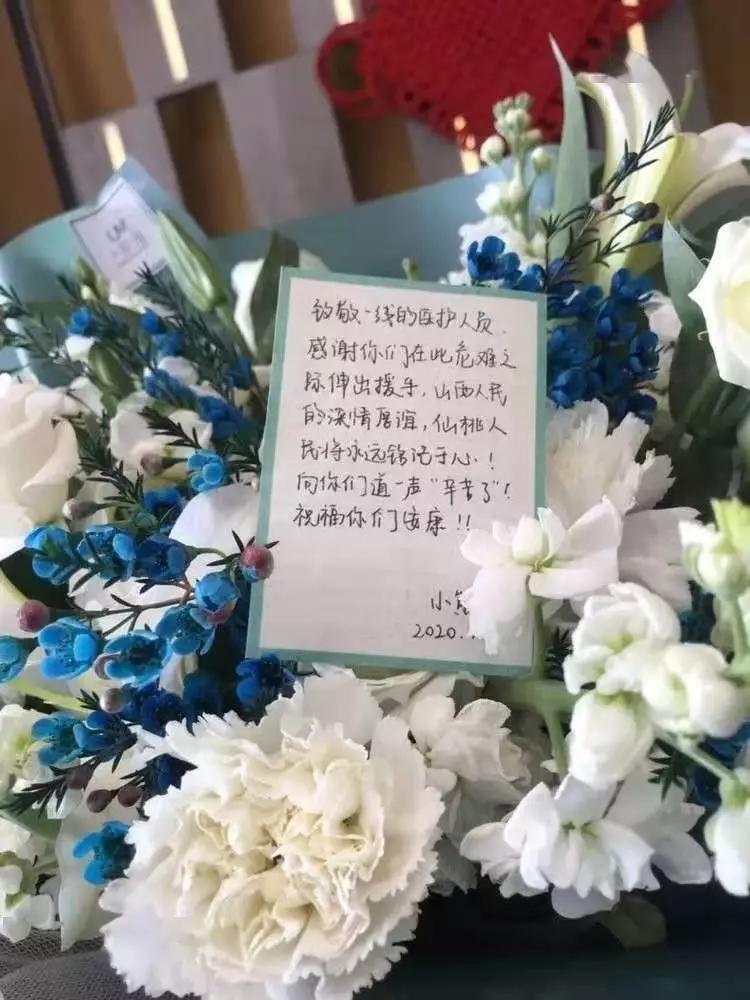 致敬一线的医护人员.
感谢你们在此危难之
际伸出援手,山西人民
的深情厚谊,仙桃人
民将永远铭记于心!
向你们道一声“辛苦了”!
祝福你们安康!!
小
2020.